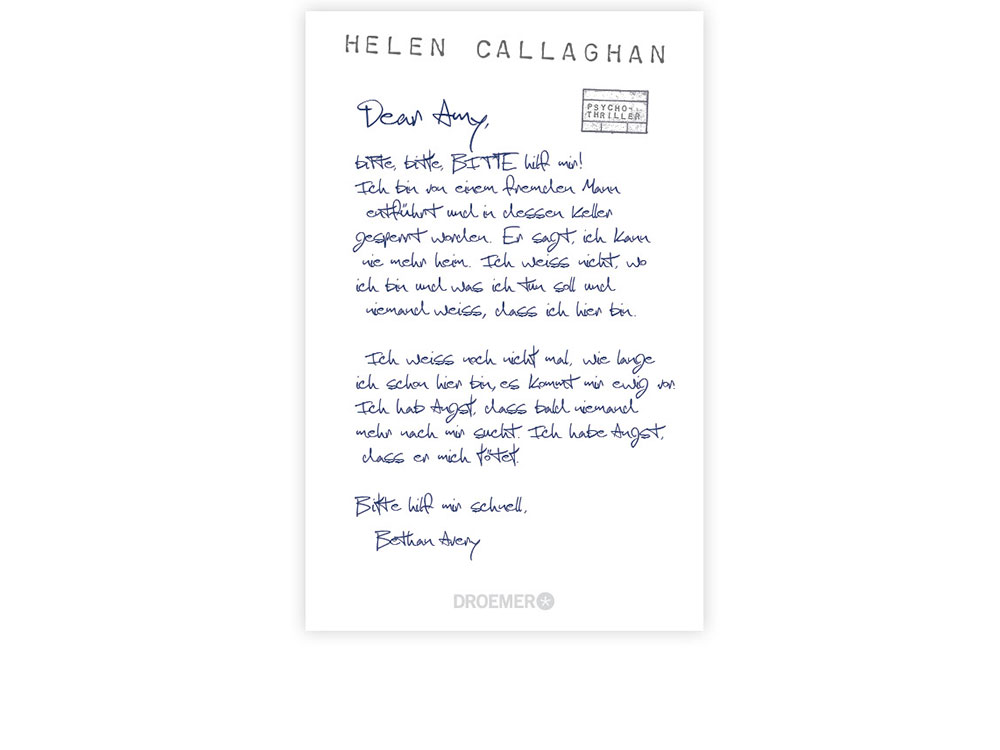 HELEN CALLAGHAN
Dear Amy,
PSYCHO-
THRILLER
bitte, bitte, BITTE hilf mir!
Ich bin von einem fremden Mann
entführt und in dessen Keller
gesperrt worden. Er sagt, ich kann
nie mehr heim. Ich weiss nicht, wo
ich bin und was ich tun soll und
niemand weiss, dass ich hier bin.
Ich weiss noch nicht mal, wie lange
ich schon hier bin, es kommt mir ewig vor.
Ich hab Angst, dass bald niemand
mehr nach mir sucht. Ich habe Angst,
dass er mich tötet.
Bitte hilf mir schnell,
Bethan Avery
DROEMER